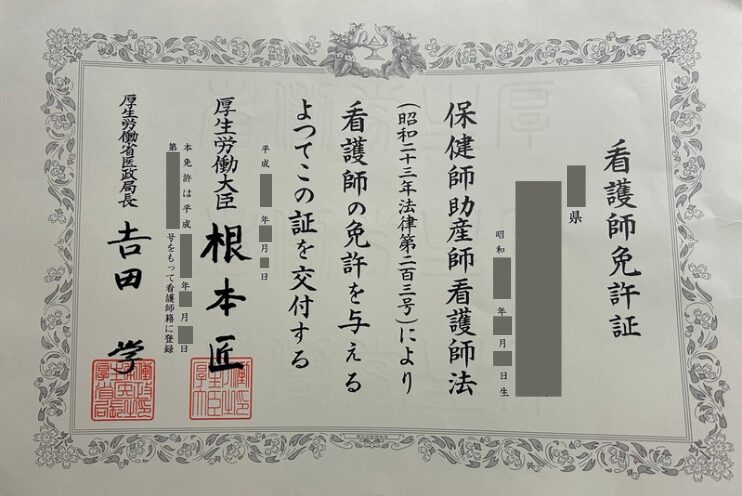 看護師免許証
県
昭和 年 月 日生
保健師助産師看護師法
(昭和二十三年法律第二百三号)により
看護師の免許を与える
よつてこの証を交付する
平成 年 月 日
厚生労働大臣 根本匠
本免許は平成 年 月 日
第 号をもって看護師籍に登録
厚生労働省医政局長 吉田 学